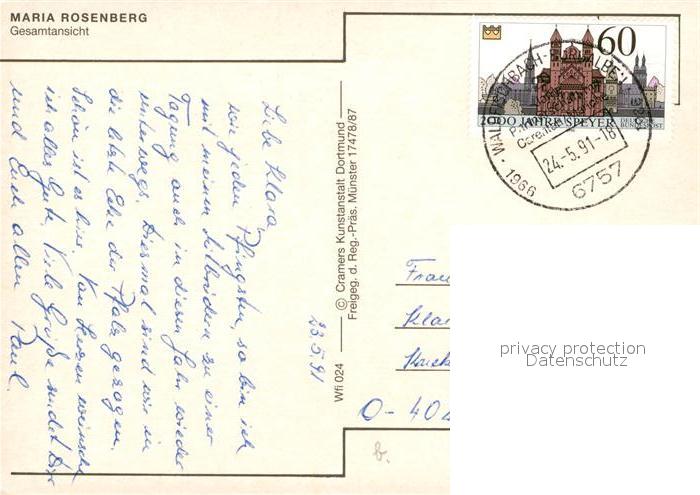 MARIA ROSENBERG
Gesamtansicht
Liebe Klara,
von jeden Pfingsten, so bin ich
mit meinen Mitbrüdern zu einer
Tagung auch in diesem Jahr wieder
unterwegs. Diesmal sind wir in
die letzte Ecke der Pfalz gezogen.
Schön ist es hier. Von Herzen wünsche
ich alles Gute. Viele Grüße sendet Dir
und Euch allen Paul.
23.5.91
Wfl 024
© Cramers Kunstanstalt Dortmund
Freigeg. d. Reg.-Präs. Münster 17478/87
60
2000 JAHRE SPEYER
DEUTSCHE BUNDESPOST
WALDFISCHBACH-BURGALBEN 1
24.-5.91-18
6757
1966
Frau
Kla
O-40
b.
privacy protection
Datenschutz